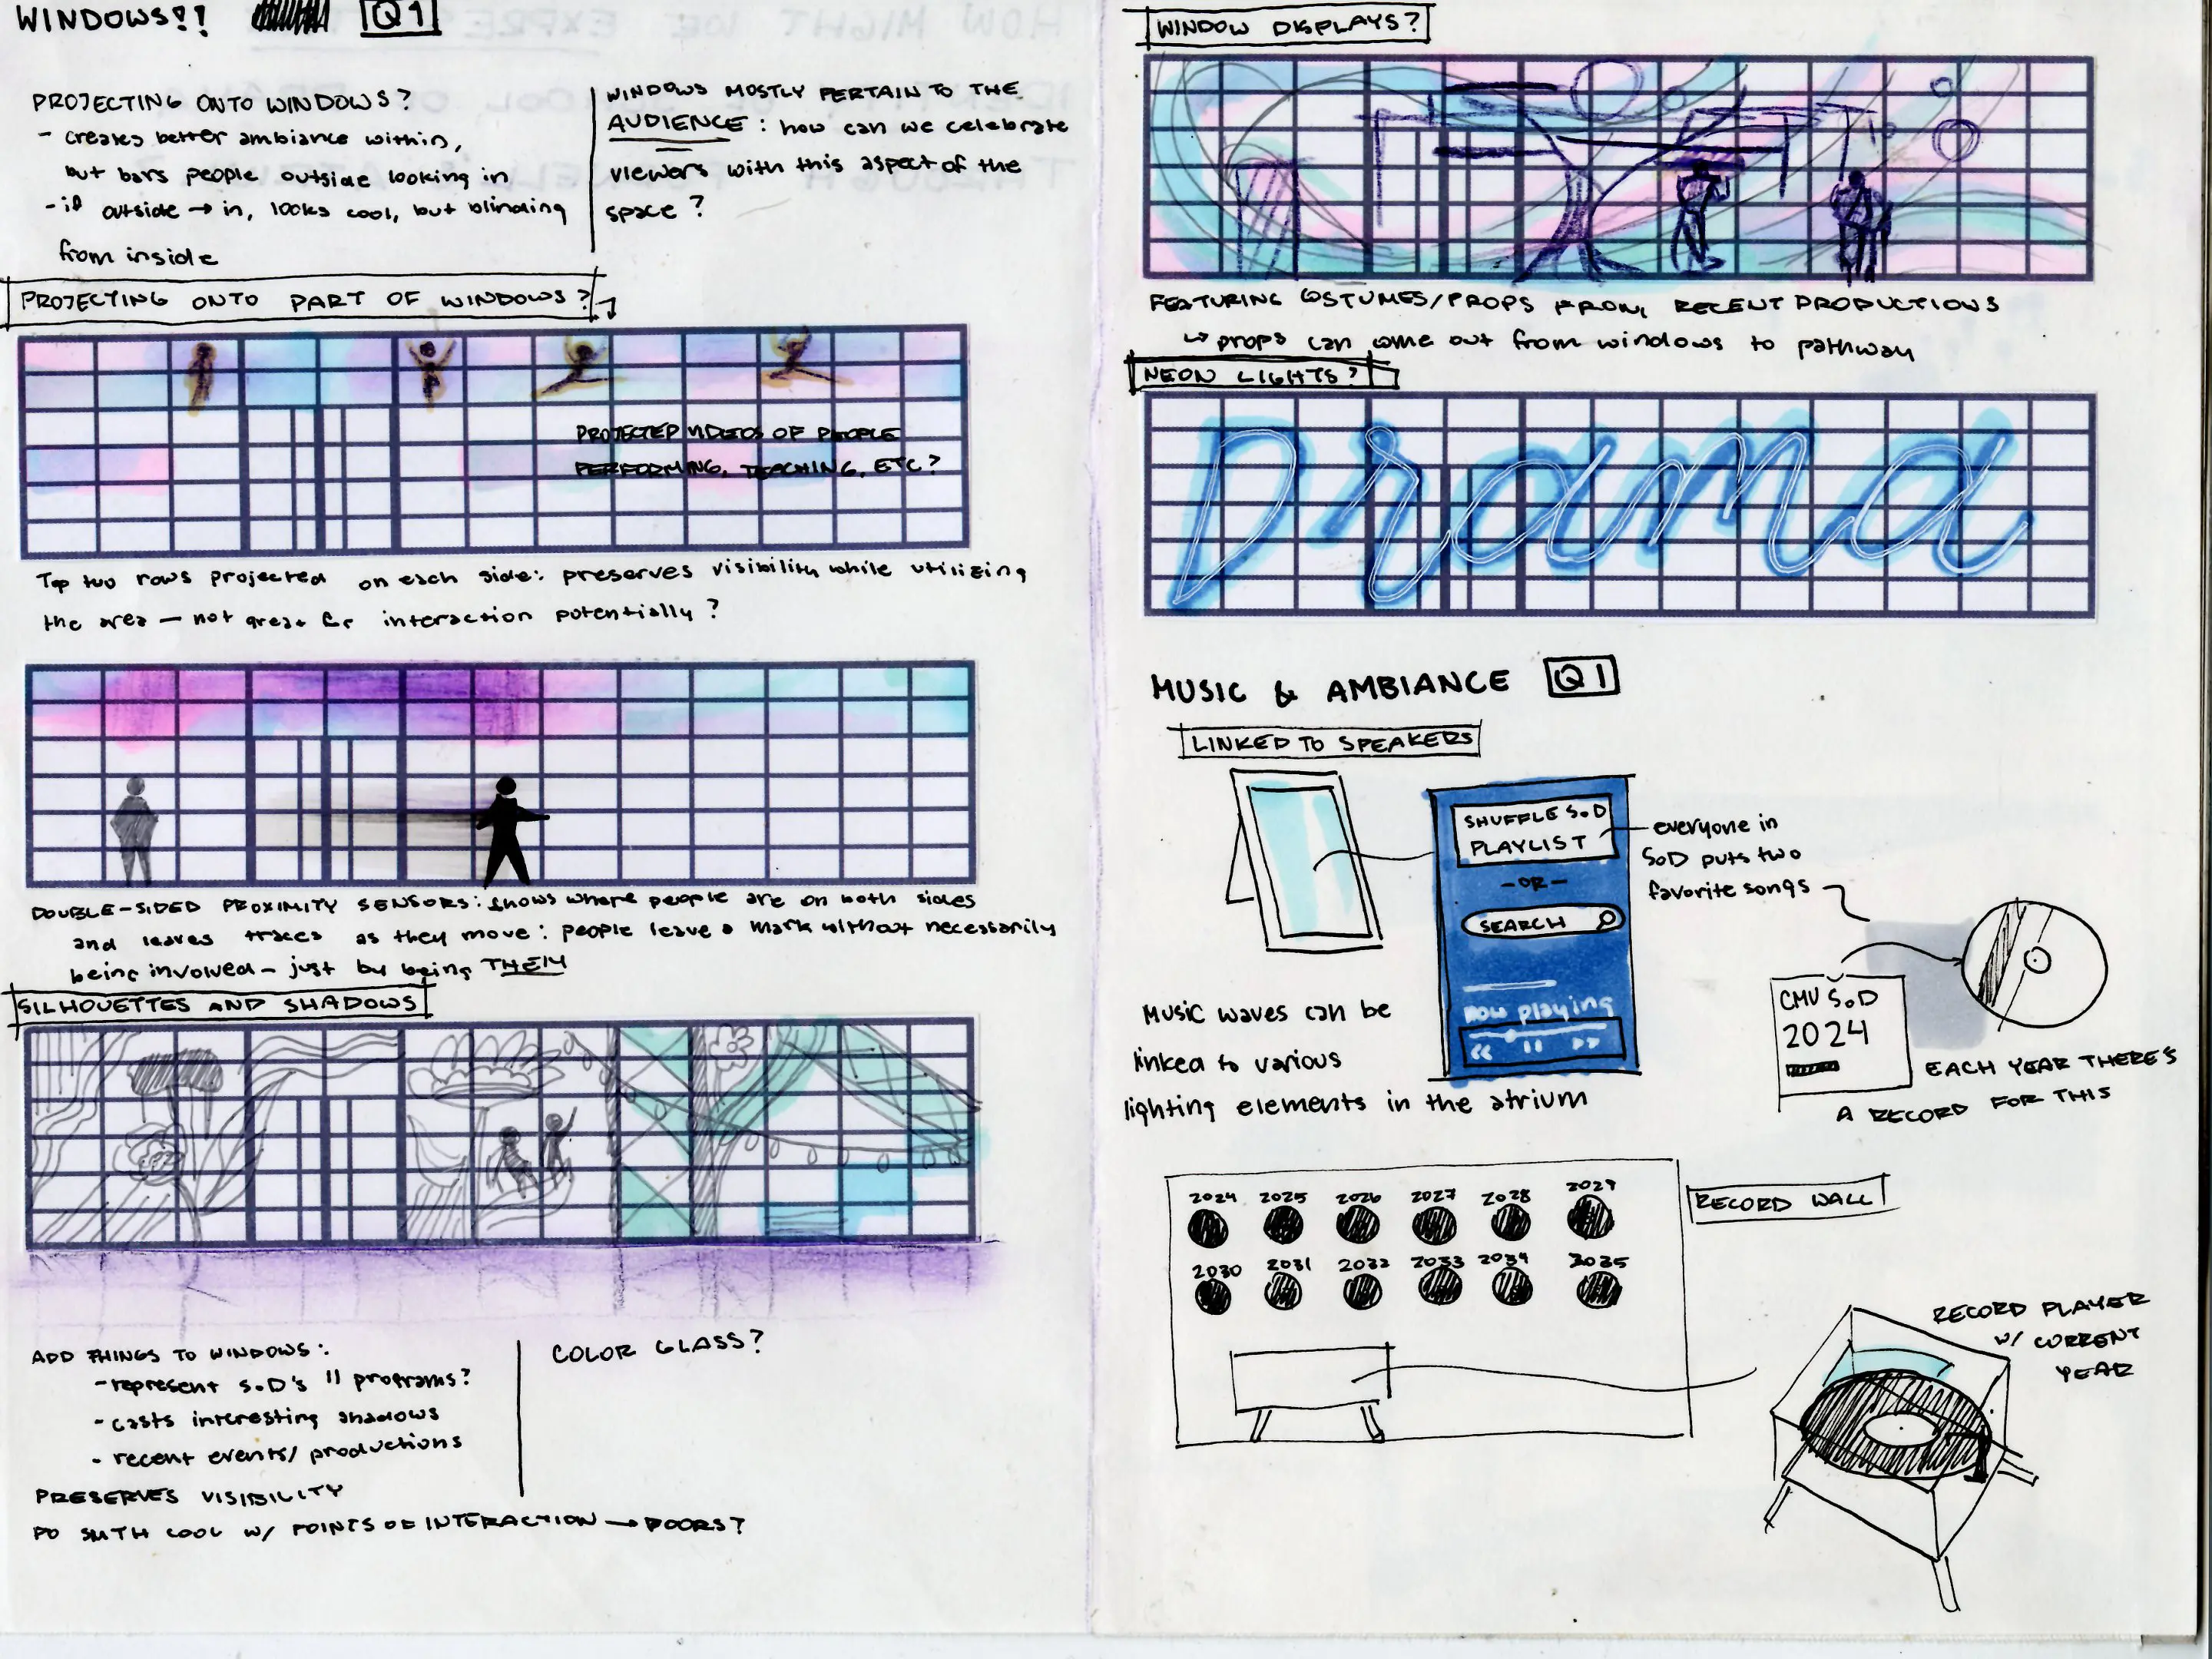 WINDOWS?? Q1
PROJECTING ONTO WINDOWS?
- creates better ambiance within,
but bars people outside looking in
- if outside → in, looks cool, but blinding
from inside
WINDOWS MOSTLY PERTAIN TO THE
AUDIENCE: how can we celebrate
viewers with this aspect of the
space?
PROJECTING ONTO PART OF WINDOWS?
PROJECTED VIDEOS OF PEOPLE
PERFORMING, TEACHING, ETC?
Top two rows projected on each side: preserves visibility while utilizing
the area — not great for interaction potentially?
DOUBLE-SIDED PROXIMITY SENSORS: shows where people are on both sides
and leaves traces as they move: people leave a mark without necessarily
being involved - just by being THEM
SILHOUETTES AND SHADOWS
ADD THINGS TO WINDOWS:
- represent SoD's 11 programs?
- casts interesting shadows
- recent events/productions
PRESERVES VISIBILITY
DO SMTH COOL W/ POINTS OF INTERACTION → DOORS?
COLOR GLASS?
WINDOW DISPLAYS?
FEATURING COSTUMES/PROPS FROM RECENT PRODUCTIONS
↳ props can come out from windows to pathway
NEON LIGHTS?
Drama
MUSIC & AMBIANCE Q1
LINKED TO SPEAKERS
SHUFFLE SoD
PLAYLIST
- OR -
SEARCH
now playing
everyone in
SoD puts two
favorite songs
Music waves can be
linked to various
lighting elements in the atrium
CMU SoD
2024
EACH YEAR THERE'S
A RECORD FOR THIS
2024 2025 2026 2027 2028 2029
2030 2031 2032 2033 2034 2035
RECORD WALL
RECORD PLAYER
W/ CURRENT
YEAR